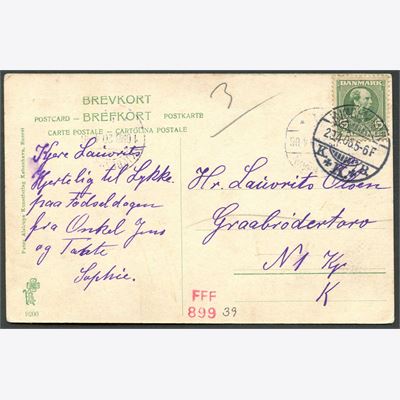 BREVKORT
BREFKORT
POSTCARD — POSTKARTE
CARTE POSTALE — CARTOLINA POSTALE
DANMARK
5-6F
K
Kjære Lauvrits
Hjertelig til Lykke
paa Födselsdagen
fra Onkel Jens
og Tante
Sophie.
Hr. Lauvrits Olsen
Graabrödertorv
N1 Kp
K
FFF
899 39
3
9200